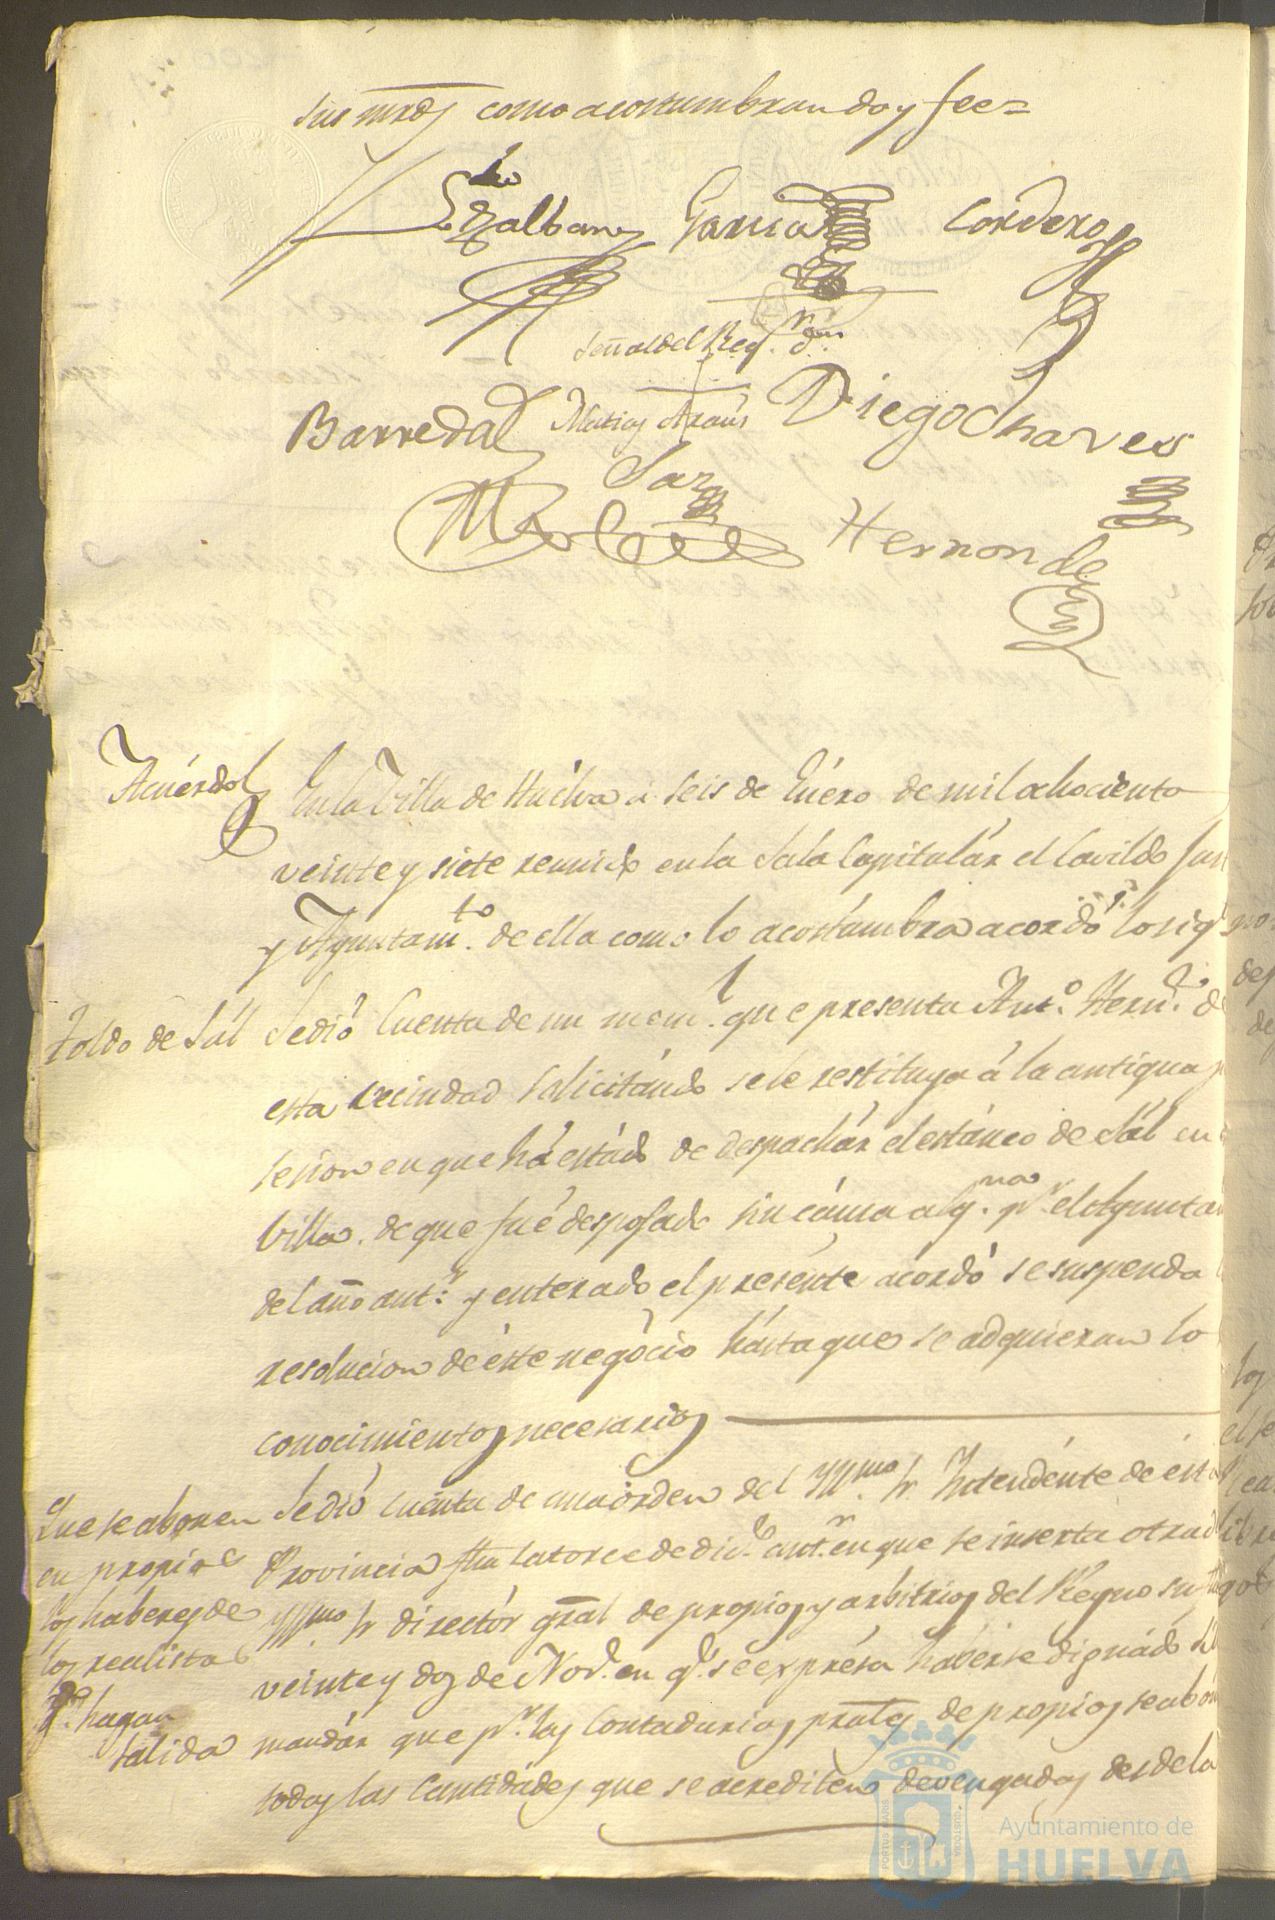 sus mrds como acostumbran doy fee=
Ldo
Galban García Cordero
Señal del Regr. dn.
Barreda Matias Araus Diego Chaves
Saz
Hernondes
Acuérdo
En la Villa de Huelva á seis de Enéro de mil ochociento
veinte y siete reunido en la Sala Capitulár el Cavildo Jus
y Ayuntamto. de ella como lo acostúmbra acordó lo sigte
Toldo de Sál
Se dió Cuenta de un meml. que presenta Anto. Hernz. de
esta vecindad solicitándo se le restituya á la antigua po
sesion en que há estádo de despachár el estánco de Sál en
villa, de que fué despojado sin cáusa algna. pr. el Ayunta
del año antr. y enterado el presénte acordó se suspenda
resolucion de éste negócio hásta que se adquieran lo
conocimientos necesarios
Que se abonen
en propios
los haberes de
los realistas
qe. hagan
salida
Se dió cuénta de una órden del Yllmo. Sr. Yntendénte de ésta
Provincia fha catorce de dice. antr. en que se inserta otra d
Yllmo Sr directór gral de propios y arbitrios del Reyno su fha
veinte y dos de Nove. en qe. se exprésa habérse dignádo S.
mandár que pr. las Contadurias prales de propios se abón
todas las Cantidádes que se acrediten devengadas desde la
Ayuntamiento de
HUELVA
PORTUS MARIS
CUSTODIA